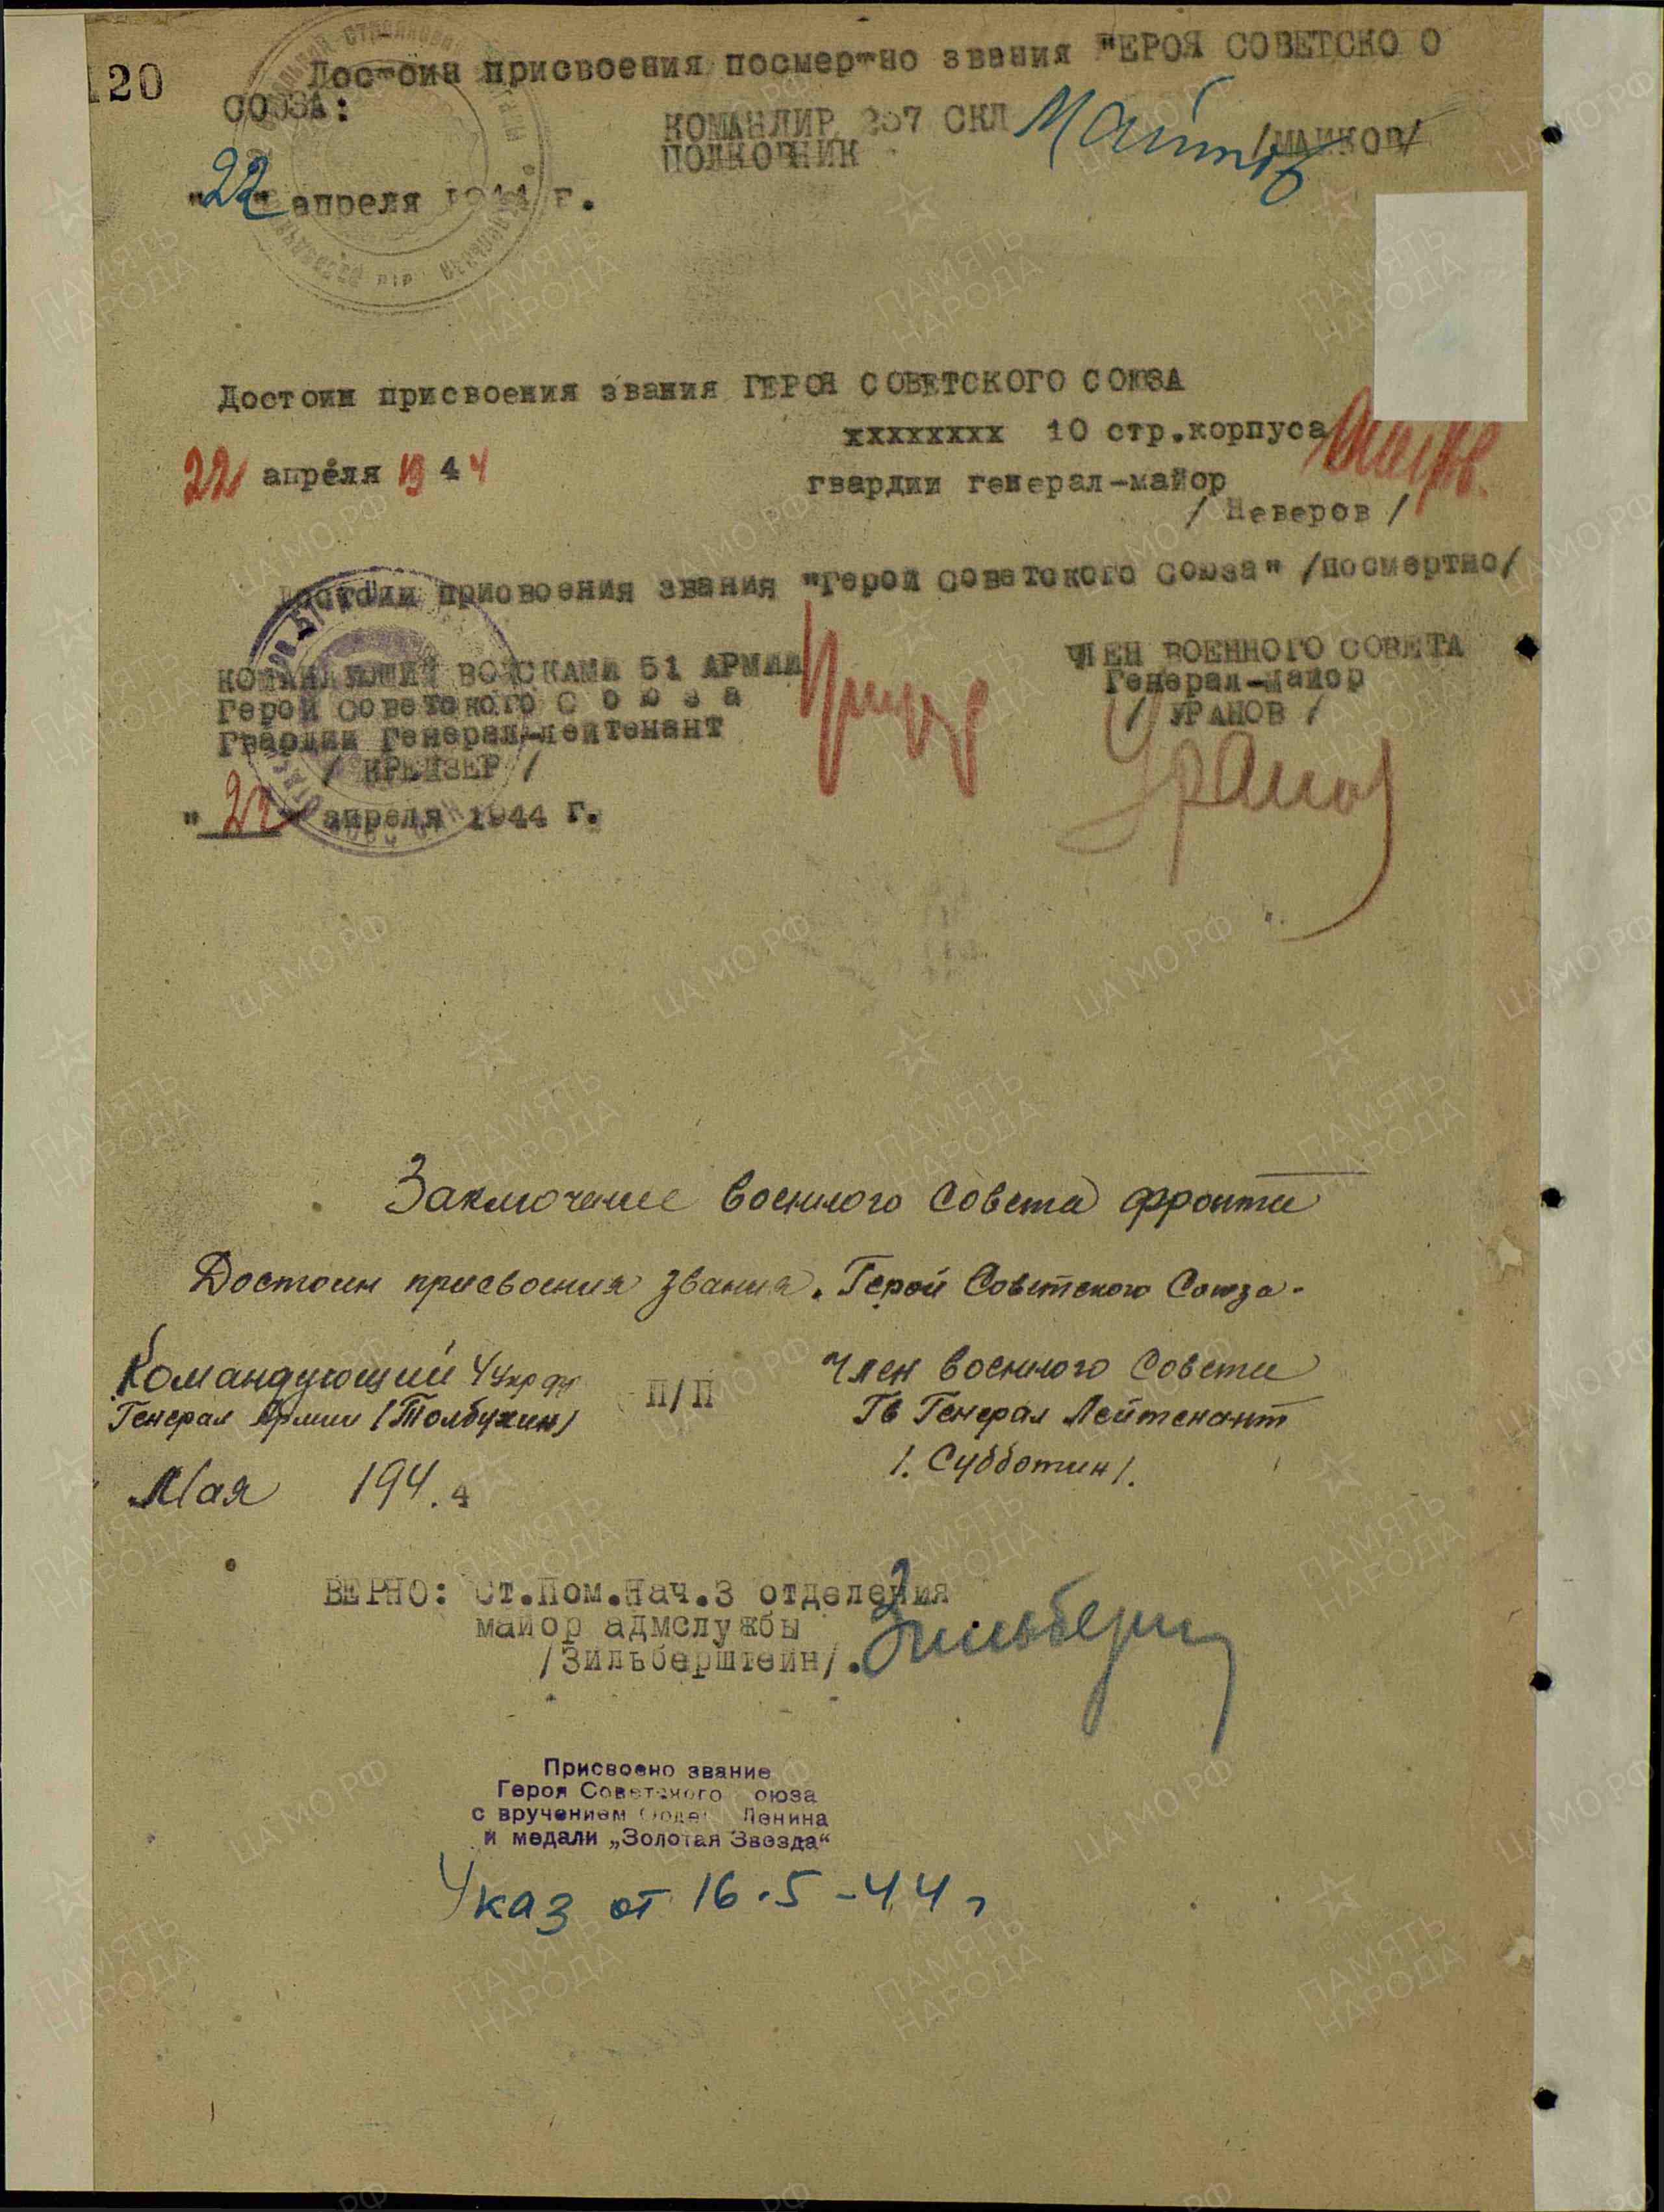 120
Достоин присвоения посмертно звания "ЕРОЯ СОВЕТСКО О
СОЮЗА:
КОМАНДИР 267 СКД
ПОЛКОВНИК
/МАЙКОВ/
"22" апреля 1944 г.
Достоин присвоения звания ГЕРОЯ СОВЕТСКОГО СОЮЗА
хххххххх 10 стр.корпуса
22 апреля 1944
гвардии генерал-майор
/ Неверов /
Достоин присвоения звания "Герой Советского Союза" /посмертно/
КОМАНДУЮЩИЙ ВОЙСКАМИ 51 АРМИИ
Герой Советского С о ю з а
Гвардии Генерал-лейтенант
/ КРЕЙЗЕР /
"22" апреля 1944 г.
ЧЛЕН ВОЕННОГО СОВЕТА
Генерал-майор
/ УРАНОВ /
Уранов
Заключение Военного Совета фронта
Достоин присвоения звания. Герой Советского Союза.
Командующий 4 Укр фр
Генерал Армии /Толбухин/
П/П
Член Военного Совета
Гв Генерал Лейтенант
/. Субботин /.
" Мая 194.4
ВЕРНО: Ст.Пом.Нач.3 отделения
майор адмслужбы
/Зильберштейн/.
Присвоено звание
Героя Советского оюза
с вручением Орде Ленина
и медали „Золотая Звезда“
Указ от 16.5-44 г